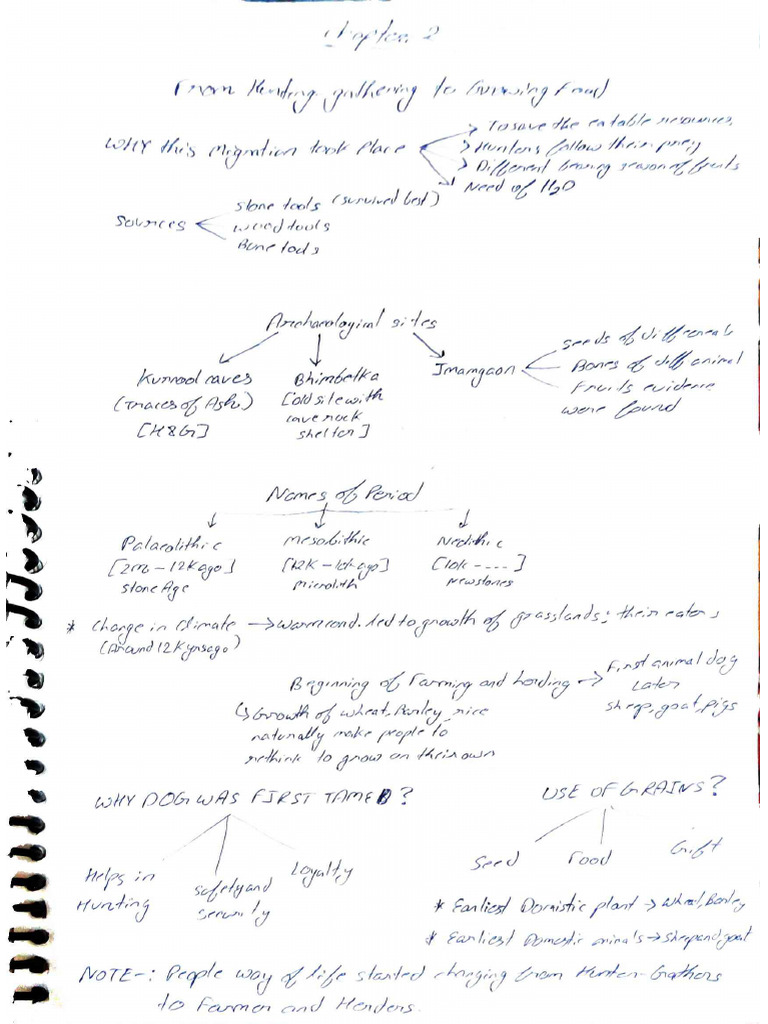 Chapter 2
From Hunting gathering to Growing Food
WHY this Migration took place
To save the eatable resources.
Hunters follow their prey
Different bearing season of fruits
Need of H2O
Sources
Stone tools (survived best)
wood tools
Bone tools
Archaeological sites
Kurnool caves
(Traces of Ash)
[H&G]
Bhimbetka
[old site with
cave rock
shelter]
Inamgaon
Seeds of different
Bones of diff animal
Fruits evidence
were found
Names of Period
Palaeolithic
[2m - 12K ago]
Stone Age
Mesolithic
[12K - 10k ago]
Microlith
Neolithic
[10k - - - -]
New stones
* Change in climate → warm cond. led to growth of grasslands; their eaters
(Around 12K yrs ago)
Beginning of Farming and herding →
First animal dog
Later
sheep, goat, pigs
↳ Growth of wheat, Barley, rice
naturally make people to
rethink to grow on their own
WHY DOG WAS FIRST TAMED?
Helps in
Hunting
safety and
security
Loyalty
USE OF GRAINS?
Seed
Food
Gift
* Earliest Domistic plant → Wheat, Barley
* Earliest Domestic animals → sheep and goat
NOTE-: People way of life started changing from Hunter-Gathers
to Farmer and Herders.